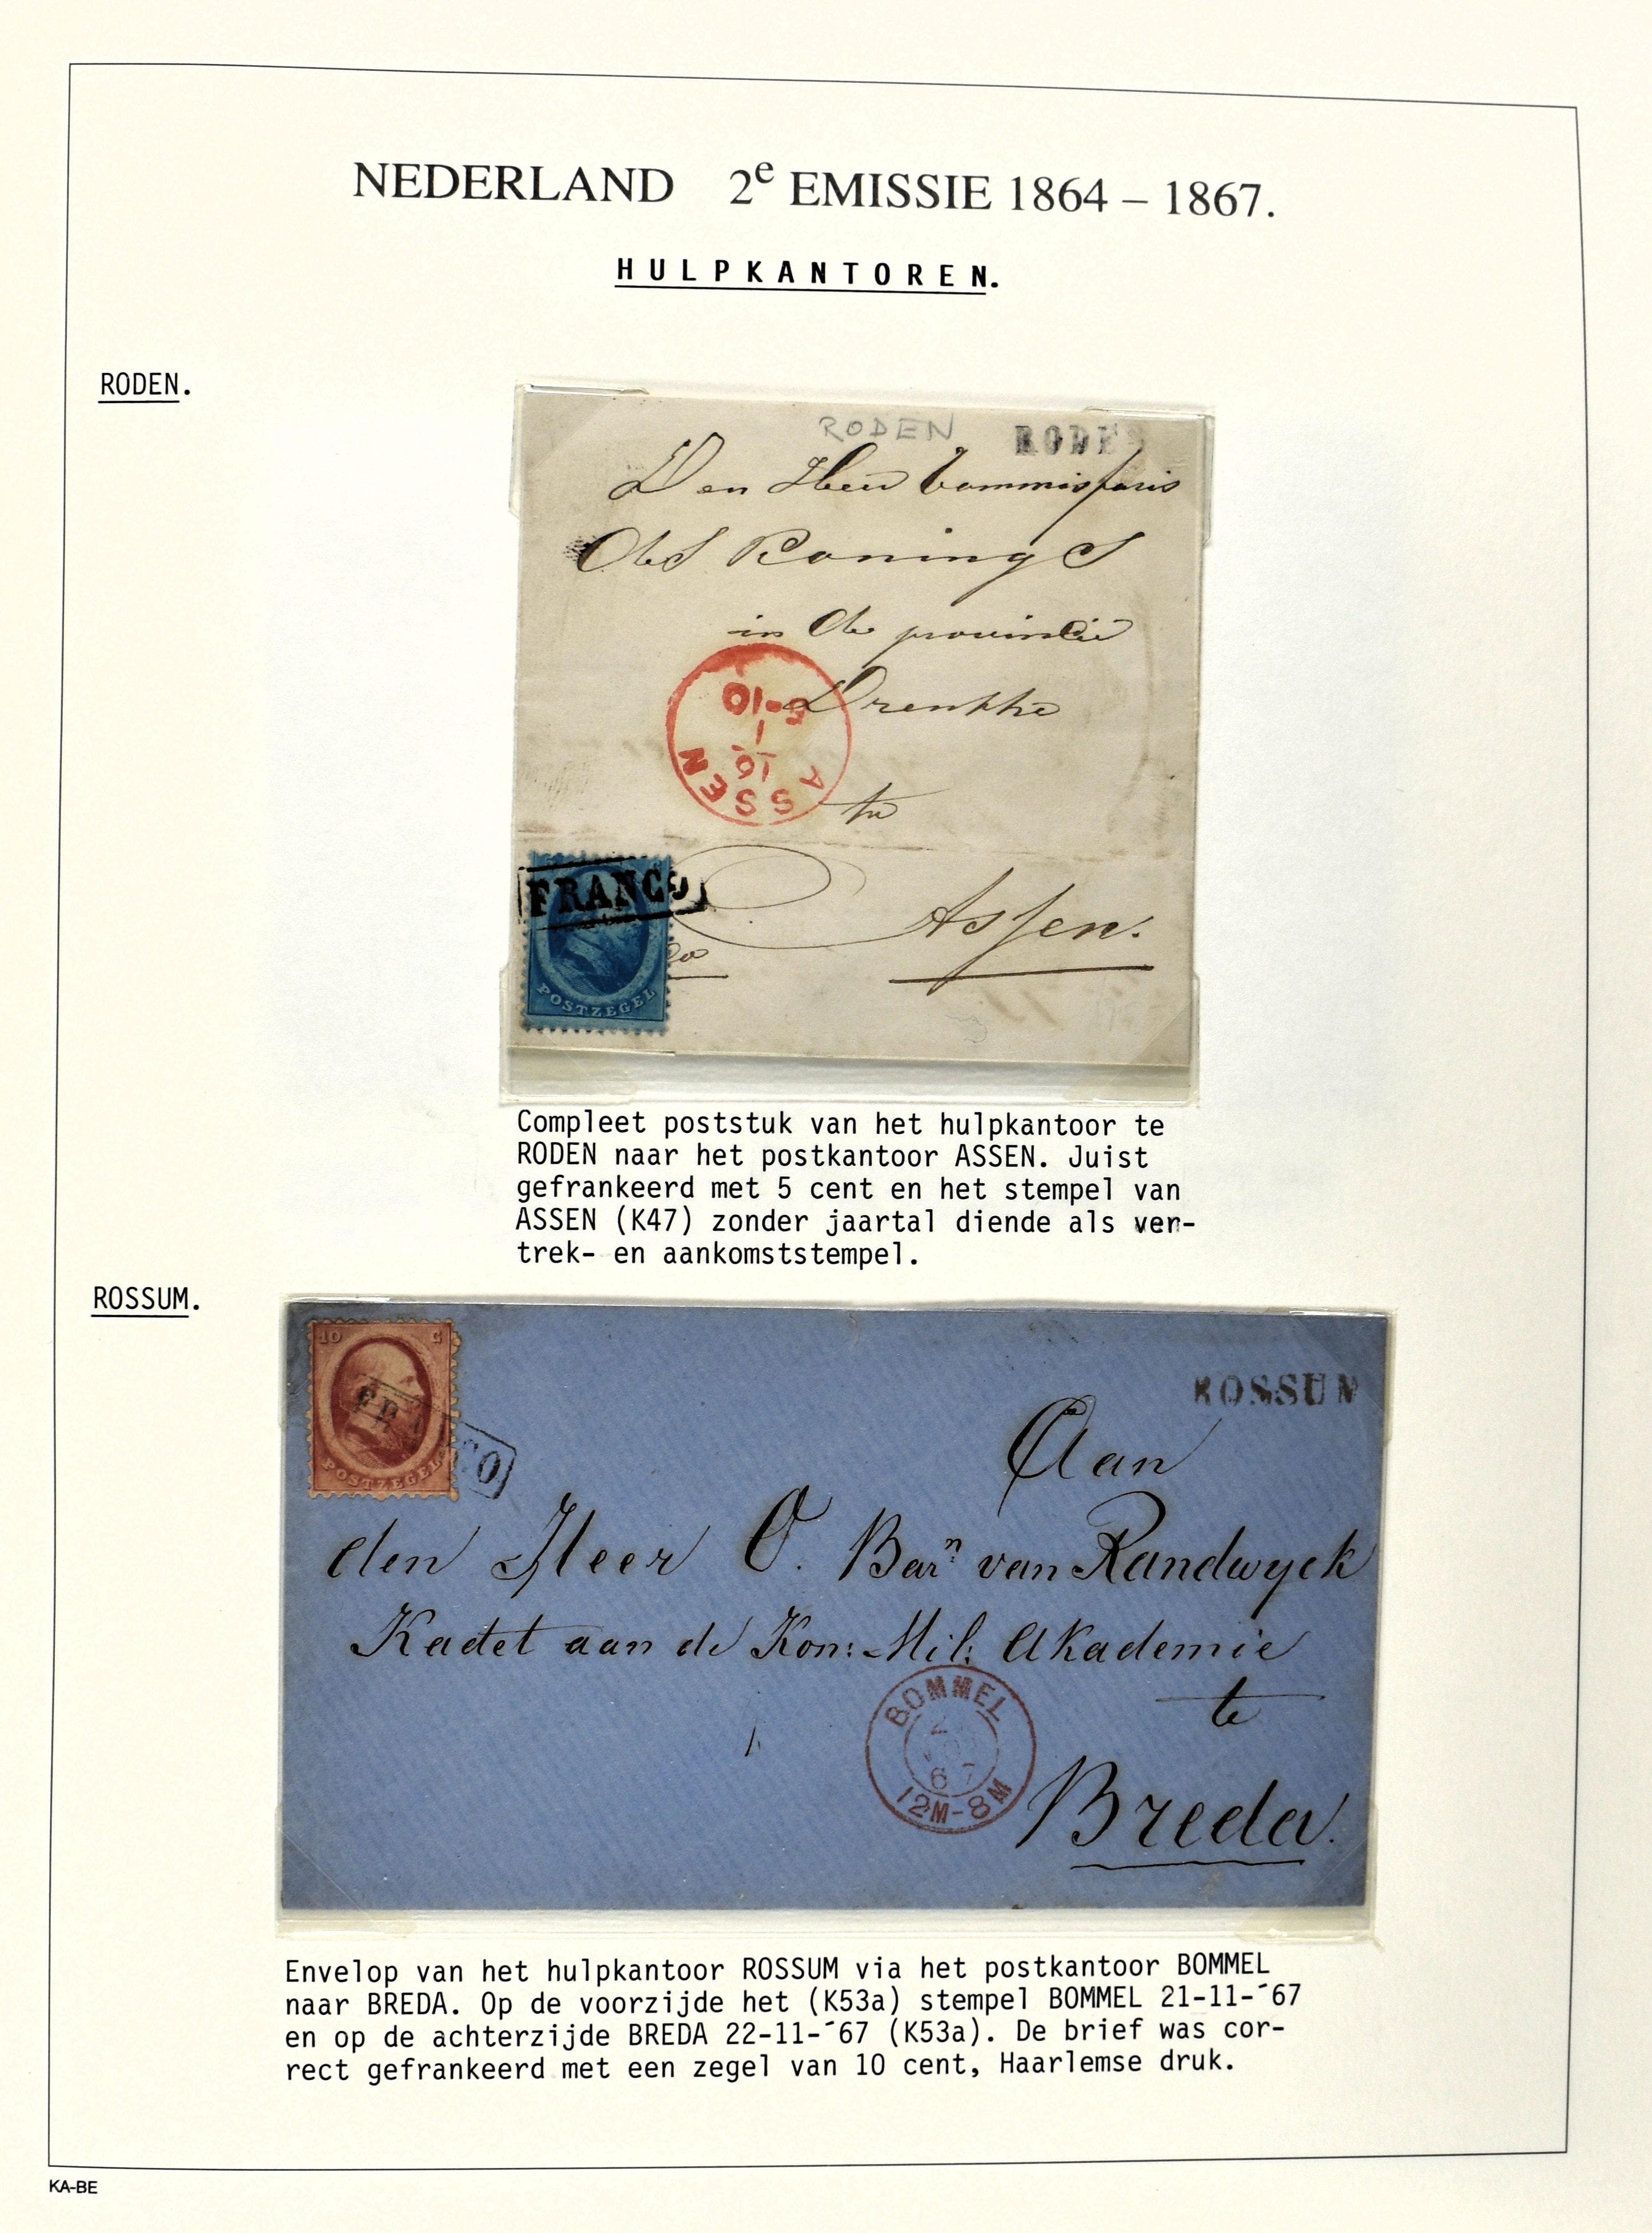 NEDERLAND 2e EMISSIE 1864 – 1867.
HULPKANTOREN.
RODEN.
RODEN
RODEN
Den Heer Commissaris
des Konings
in de provincie
Drenthe
te
Assen.
ASSEN
10
1
5-10
FRANCO
POSTZEGEL
Compleet poststuk van het hulpkantoor te
RODEN naar het postkantoor ASSEN. Juist
gefrankeerd met 5 cent en het stempel van
ASSEN (K47) zonder jaartal diende als ver-
trek- en aankomststempel.
ROSSUM.
10 C
POSTZEGEL
FRANCO
ROSSUM
Aan
den Heer O. Barn van Randwyck
Kadet aan de Kon: Mil: Akademie
te
Breda.
BOMMEL
67
12M-8M
Envelop van het hulpkantoor ROSSUM via het postkantoor BOMMEL
naar BREDA. Op de voorzijde het (K53a) stempel BOMMEL 21-11-´67
en op de achterzijde BREDA 22-11-´67 (K53a). De brief was cor-
rect gefrankeerd met een zegel van 10 cent, Haarlemse druk.
KA-BE